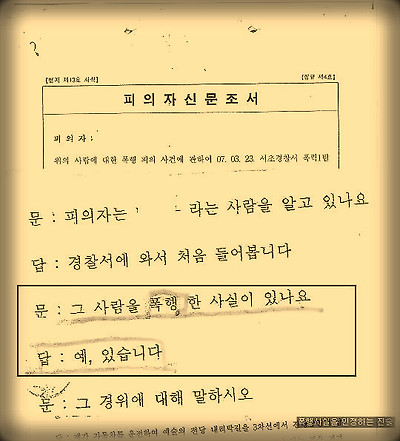 ?
[별지 제13호 서식]
피의자신문조서
피 의 자 :
위의 사람에 대한 폭행 피의 사건에 관하여 07. 03. 23. 서초경찰서 폭력1팀
문 : 피의자는 라는 사람을 알고 있나요
답 : 경찰서에 와서 처음 들어봅니다
문 : 그 사람을 폭행 한 사실이 있나요
답 : 예, 있습니다
문 : 그 경위에 대해 말하시오
폭행사실을 인정하는 진술
자동차를 운전하여 예술의 전당 3차선에서